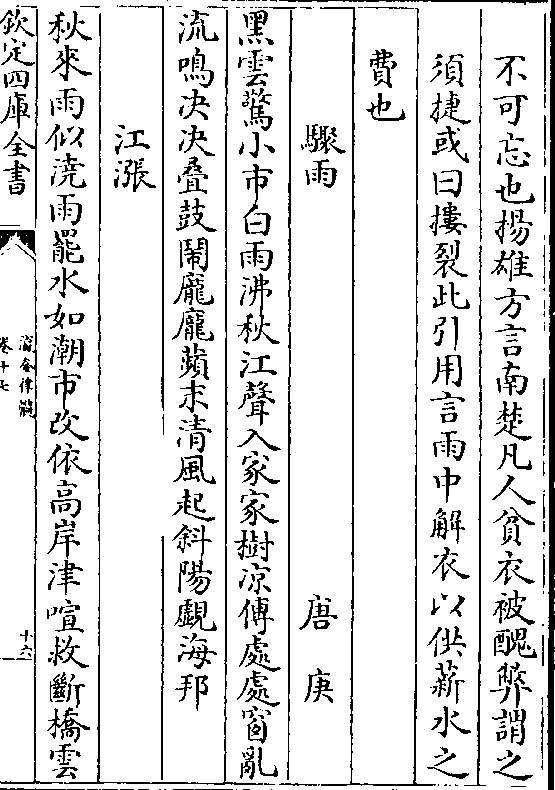 不可忘也揚雄方言南楚凡人貧衣被醜弊謂之
須捷或曰摟裂此引用言雨中解衣以供薪水之
費也
驟雨 唐庚
黑雲驚小市白雨沸秋江聲入家家樹凉傳處處窗亂
流鳴决决疊鼓鬧龐龐蘋末清風起斜陽覷海邦
江漲
秋來雨似澆雨罷水如潮市改依高岸津喧救斷橋雲
欽定四庫全書
瀛奎律髓
卷十七
十六